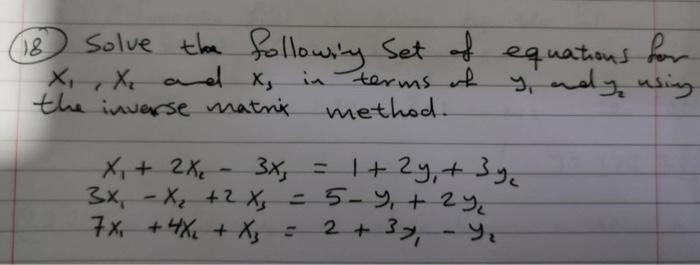 18 Solve the following set of equations for
x₁, x₂ and x₃ in terms of y₁ and y₂ using
the inverse matrix method.
x₁ + 2x₂ - 3x₃ = 1 + 2y₁ + 3y₂
3x₁ - x₂ + 2x₃ = 5 - y₁ + 2y₂
7x₁ + 4x₂ + x₃ = 2 + 3y₁ - y₂